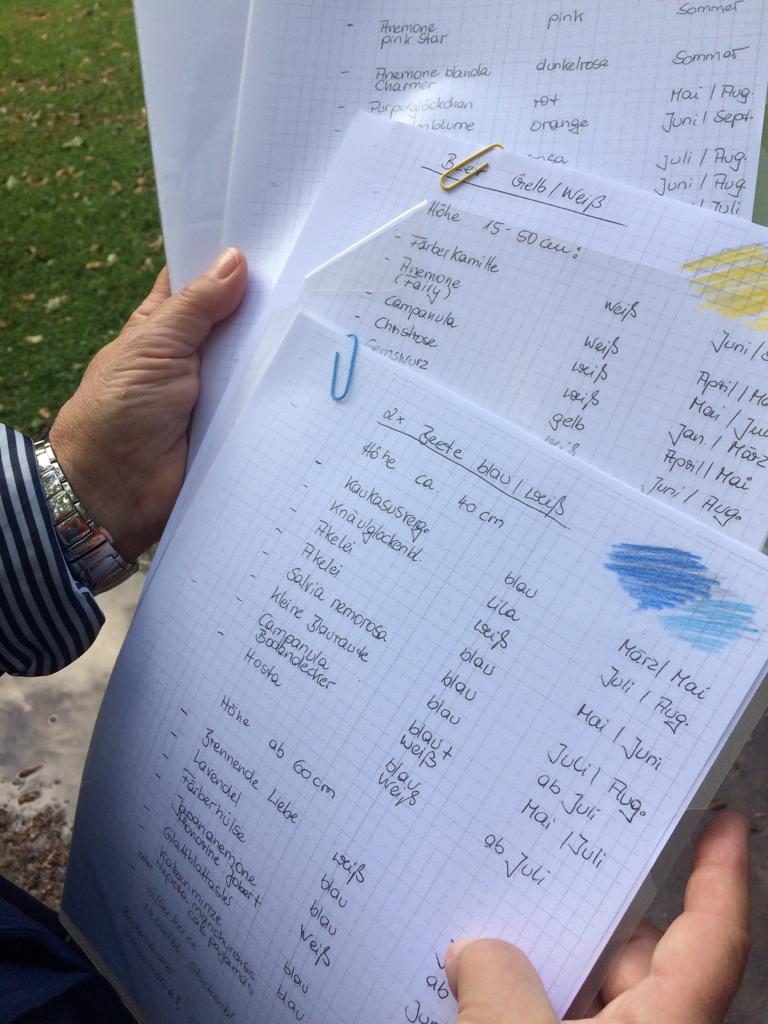 - Anemone pink Sommer
pink Star
- Anemone blanda dunkelrosa Sommer
Charmer
- Purpurglöckchen rot Mai / Aug.
orange Juni / Sept.
Juli / Aug.
Juni / Aug.
Juli
Gelb / Weiß
Höhe 15-50 cm:
- Färberkamille weiß Juni /
- Anemone weiß April / Ma
(Fairy)
- Campanula weiß Mai / Ju
- Christrose weiß Jan. / März
Gemswurz gelb April / Mai
Juni / Aug.
2x Beete blau / weiß
Höhe ca. 40 cm
- Kaukasusverg. blau März / Mai
- Knäulglockenbl. Lila Juli / Aug.
- Akelei weiß Mai / Juni
- Akelei blau
- Salvia nemorosa blau Juli / Aug.
- kleine Blauraute blau ab Juli
- Campanula blau + Mai / Juli
Bodendecker weiß
- Hosta blau ab Juli
weiß
Höhe ab 60 cm
- Brennende Liebe weiß
- Lavendel blau
- Färberhülse blau
- Japananemone weiß
Honorine Jobert
- Glattblattaster blau
- Katzenminze blau